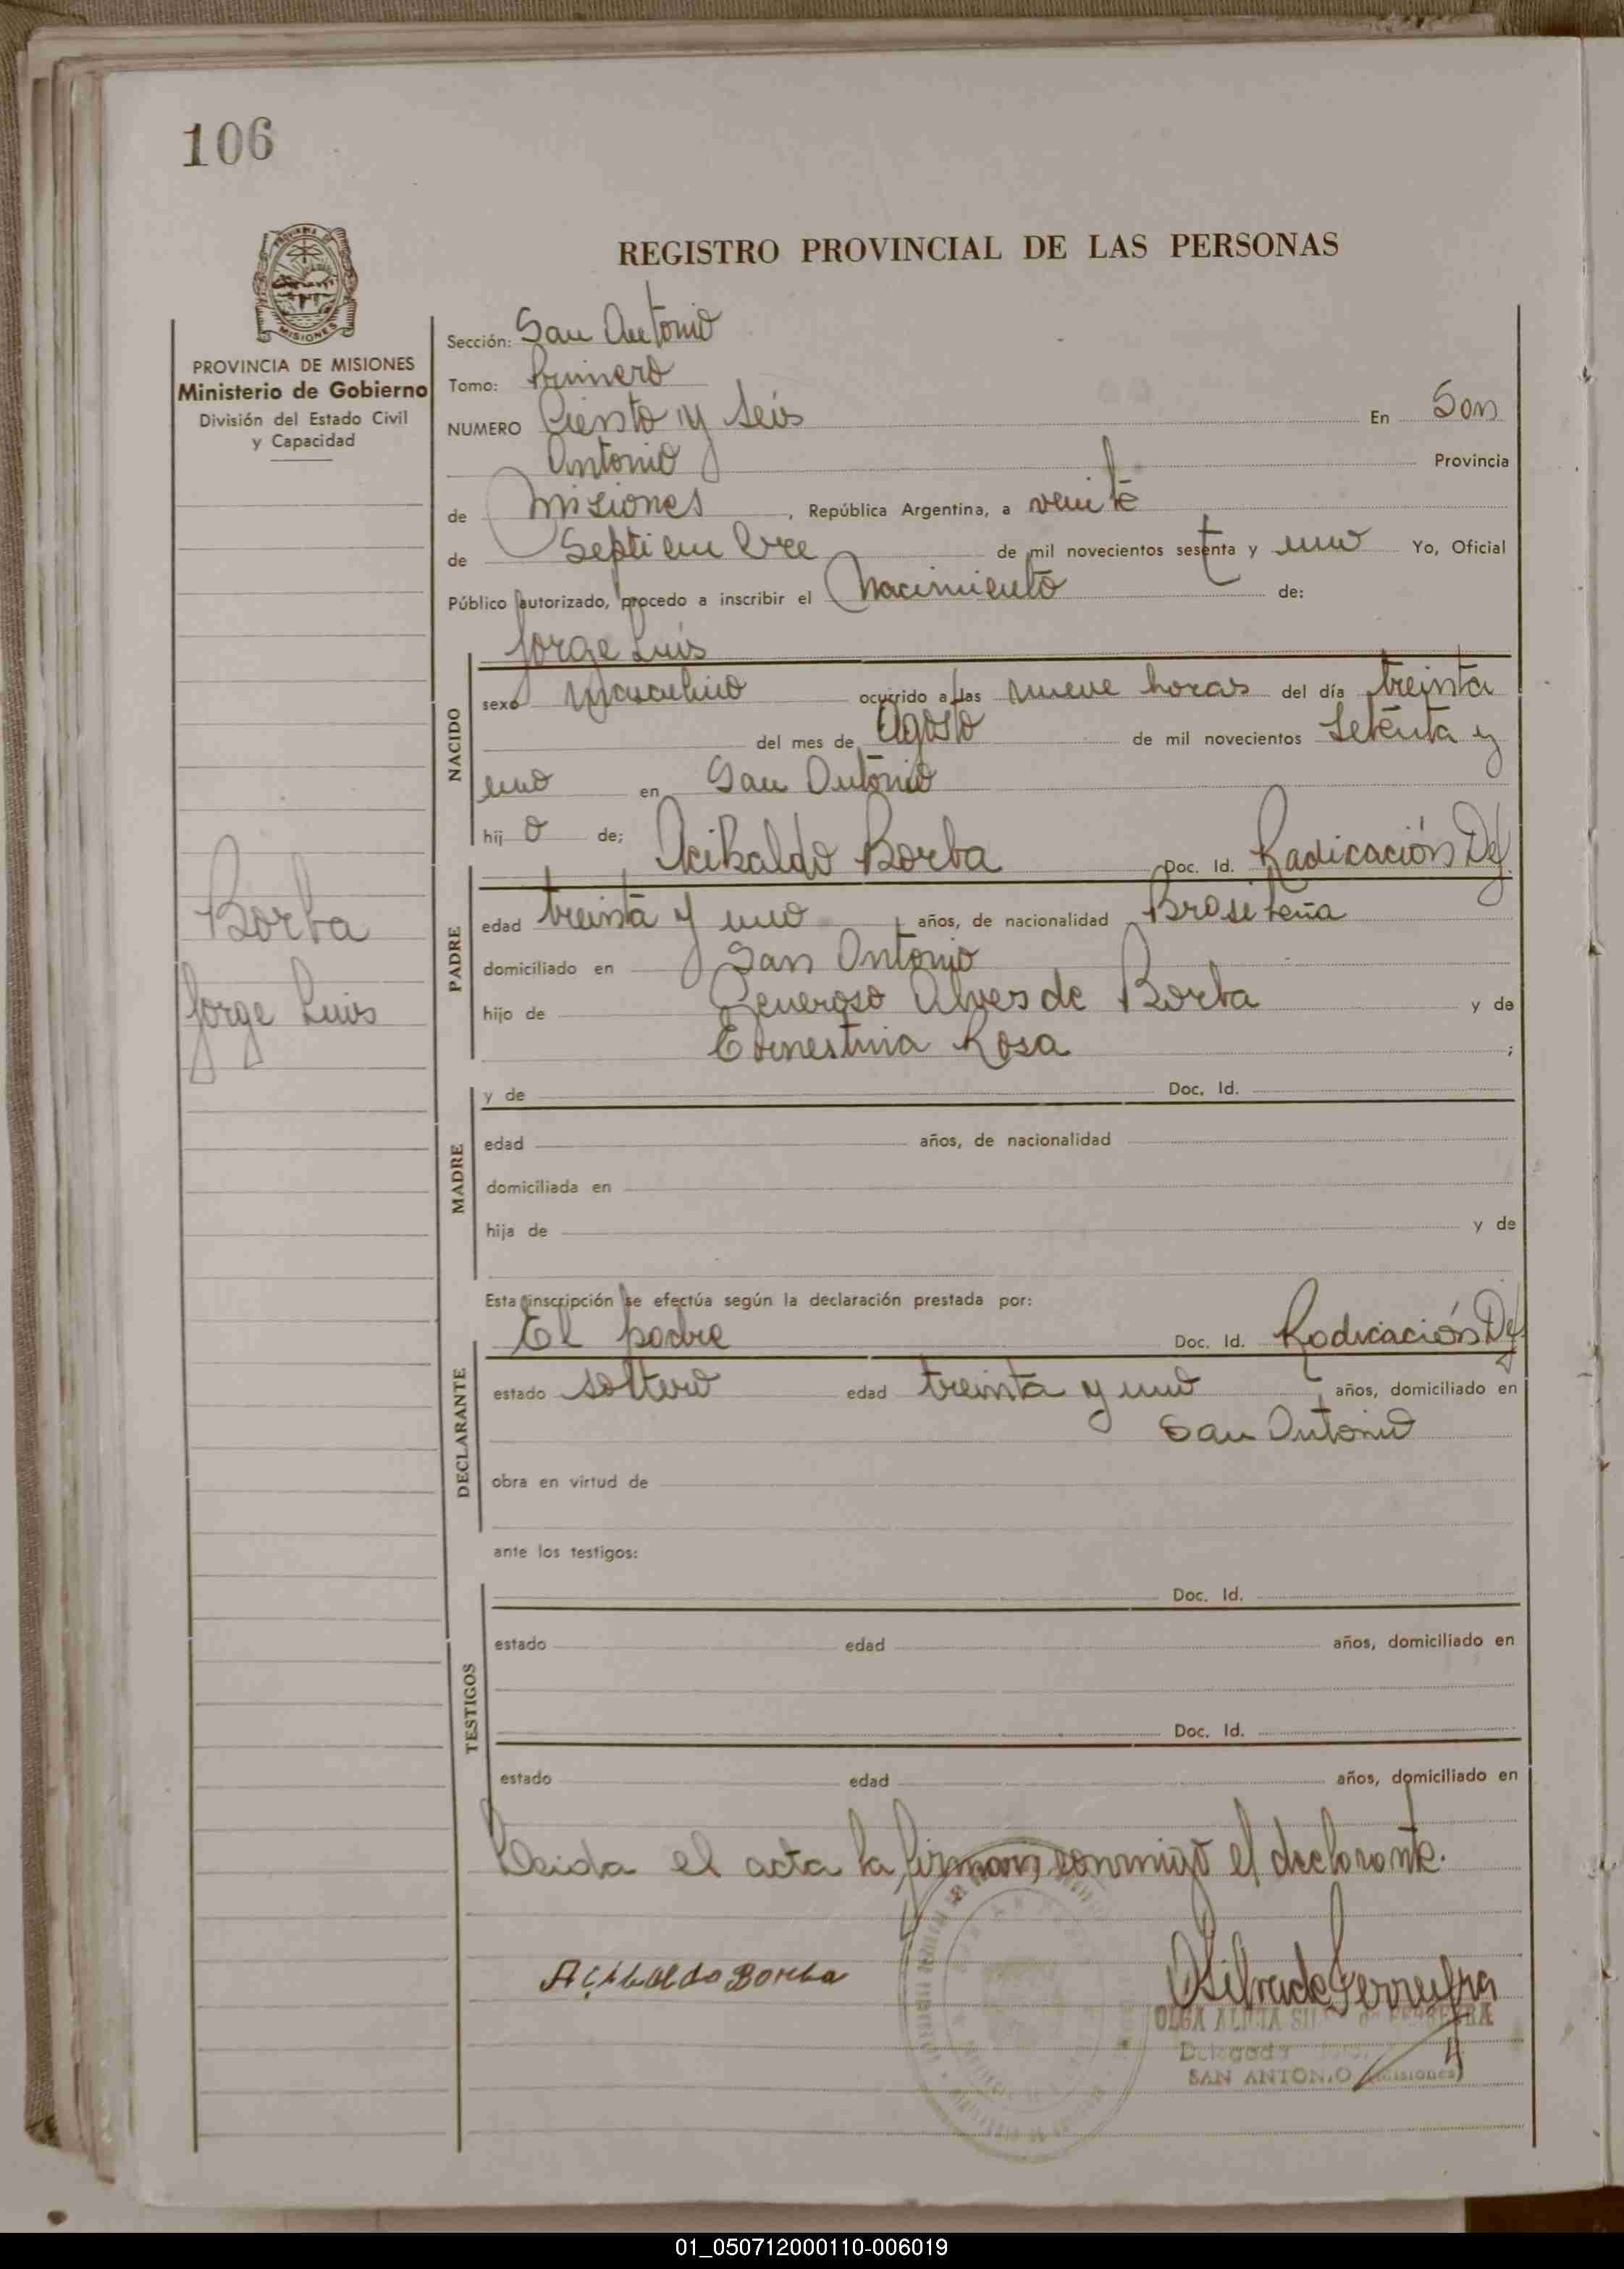 106
REGISTRO PROVINCIAL DE LAS PERSONAS
MISIONES
PROVINCIA DE MISIONES
Ministerio de Gobierno
División del Estado Civil
y Capacidad
Sección: San Antonio
Tomo: Primero
NUMERO Ciento y Seis En San
Antonio Provincia
de Misiones, República Argentina, a veinte
de Septiembre de mil novecientos setenta y uno Yo, Oficial
Público autorizado, procedo a inscribir el Nacimiento de:
Jorge Luis
NACIDO
sexo Masculino ocurrido a las nueve horas del día treinta
del mes de Agosto de mil novecientos Setenta y
uno en San Antonio
hij o de; Acibaldo Borba Doc. Id. Radicación Def.
Borba
Jorge Luis
PADRE
edad treinta y uno años, de nacionalidad Brasileña
domiciliado en San Antonio
hijo de Generoso Alves de Borba y de
Ernestina Rosa ;
MADRE
y de Doc. Id.
edad años, de nacionalidad
domiciliada en
hija de y de
Esta inscripción se efectúa según la declaración prestada por:
El padre Doc. Id. Radicación Def
DECLARANTE
estado soltero edad treinta y uno años, domiciliado en
San Antonio
obra en virtud de
ante los testigos:
TESTIGOS
Doc. Id.
estado edad años, domiciliado en
Doc. Id.
estado edad años, domiciliado en
Leida el acta la firman conmigo el declarante.
Acibaldo Borba
OLGA ALICIA de FERREYRA
Delegada
SAN ANTONIO (Misiones)
01_050712000110-006019